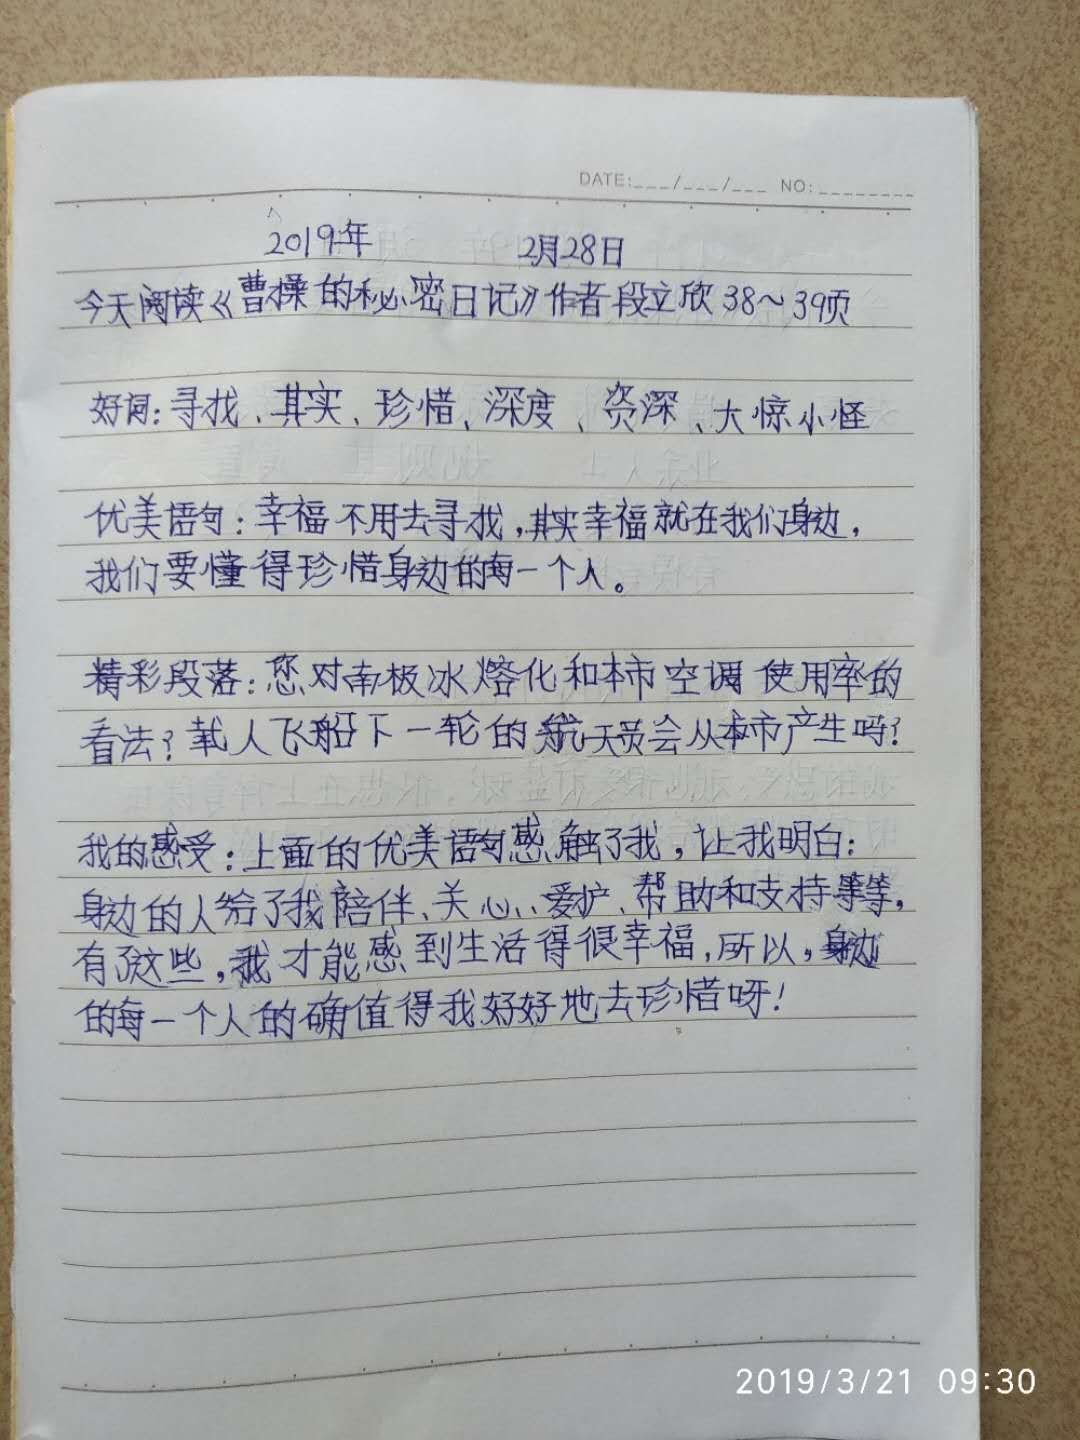 DATE:___/___/___ NO:_______
2019年 2月28日
今天阅读《曹操的秘密日记》作者段立欣38~39页
好词:寻找、其实、珍惜、深度、资深、大惊小怪
优美语句:幸福不用去寻找,其实幸福就在我们身边,
我们要懂得珍惜身边的每一个人。
精彩段落:您对南极冰熔化和本市空调使用率的
看法?载人飞船下一轮的航天员会从本市产生吗?
我的感受:上面的优美语句感触了我,让我明白:
身边的人给了我陪伴、关心、爱护、帮助和支持等等,
有了这些,我才能感到生活得很幸福,所以,身边
的每一个人的确值得我好好地去珍惜呀!
2019/3/21 09:30